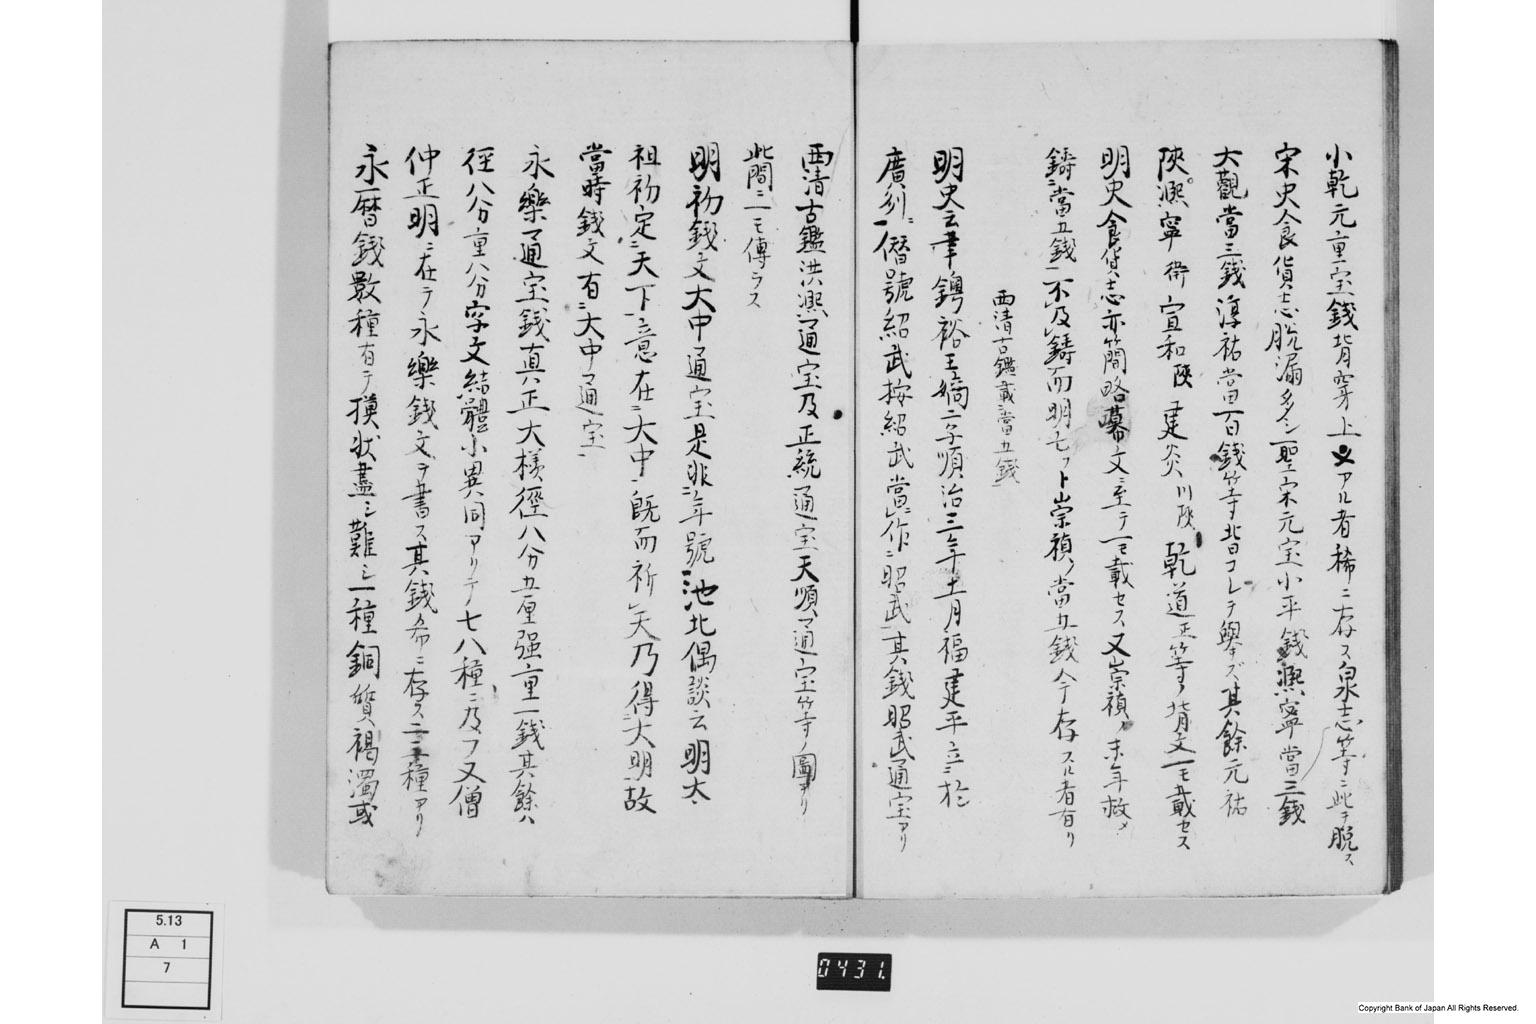 小乾元重宝錢背穿上ニアル者稀ニ存ス泉志等ニ此ヲ脱ス
宋史食貨志脱漏多シ聖宋元宝小平錢熙寧當三錢
大觀當三錢淳祐當百錢等皆コレヲ舉ズ其餘元祐
陝熙寧衛宣和陝建炎川陝乾道正等ノ背文一モ載セス
明史食貨志亦簡略幕文ニ至テ一モ載セス又崇禎ノ末年敕メ
鑄ニ當五錢一不及鑄而明亡フト崇禎ノ當五錢今存スル者有リ
西清古鑑載ニ當五錢
明史云聿鐭裕王嫡二子順治三年十一月福建平立ニ於
廣州ニ僭號紹武按紹武當ニ作ニ昭武其錢昭武通宝アリ
西清古鑑洪熙通宝及正統通宝天順通宝等ノ圖アリ
此間ニ一モ傳ラス
明初錢文大中通宝是非年號池北偶談云明太
祖初定ニ天下意在ニ大中既而祈天乃得大明故
當時錢文有ニ大中通宝
永樂通宝錢真正大様徑八分五厘强重一錢其餘ハ
徑八分重八分字文結體小異同アリテ七八種ニ及フ又僧
仲正明ニ在テ永樂錢文ヲ書ス其錢希ニ存ス二三種アリ
永曆錢數種有テ摸状盡シ難シ一種銅質褐濁或
5.13
A 1
7
0431.
Copyright Bank of Japan All Rights Reserved.